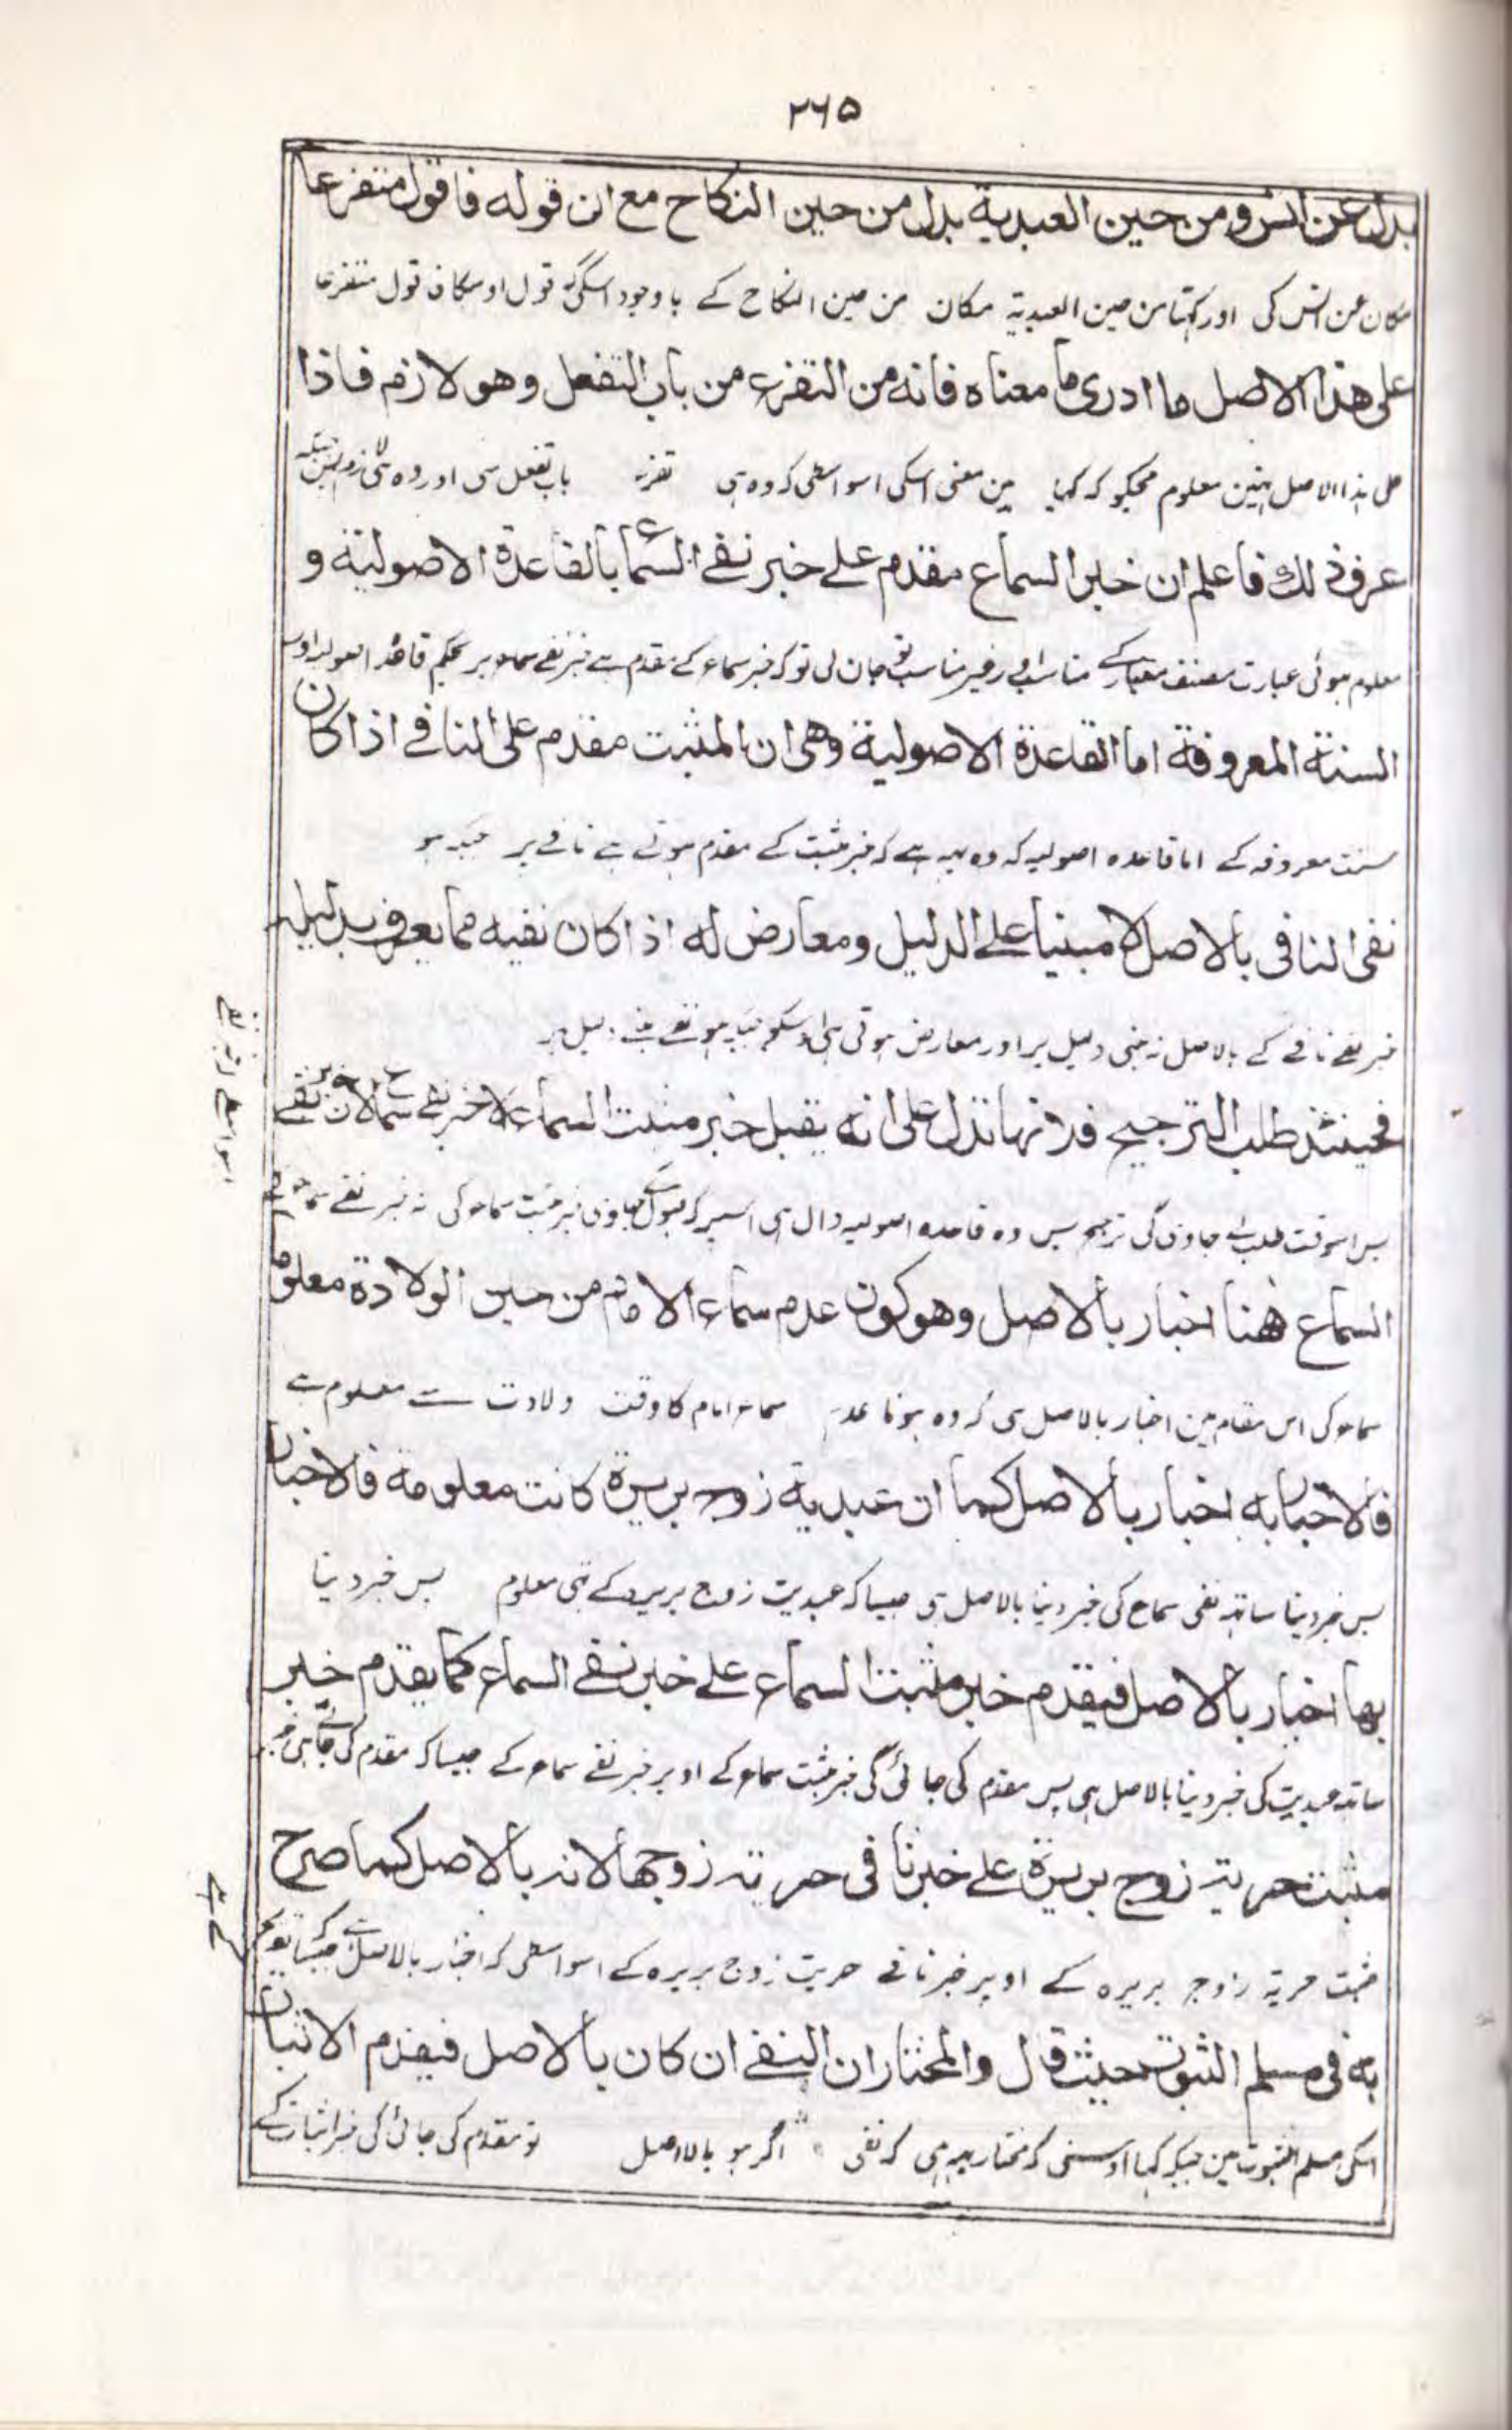 ۲۶۵
بدل عن انس ومن حين العبدية بدل من حين النكاح مع ان قوله فاقول متفرعا
مکان عن انس کی اور کہنا من حین العبدیۃ مکان من حین النکاح کے باوجود اسکی کہ قول اوسکا فاقول متفرعا
على هذا الاصل ما ادرى ما معناه فانه من التفرع من باب التفعل وهو لازم فاذا
علی ہذا الاصل نہین معلوم مجکو کہ کیا ہین معنی اسکی اسواسطی کہ وہ ہی تفرع باب تفعل سی اور وہ ہی لازم
عرف ذلك فاعلم ان خبر السماع مقدم على خبر نفے السماع بالقاعدة الاصولية و
معلوم ہوئی عبارت مصنف معیار کے مناسب اور غیر مناسب تو جان لی تو کہ خبر سماع کے مقدم ہے خبر نفے سماع پر بحکم قاعدہ اصولیہ اور
السنة المعروفة اما القاعدة الاصولية وهى ان المثبت مقدم على النافے اذا كان
سنت معروفہ کے اما قاعدہ اصولیہ کہ وہ یہہ ہے کہ خبر مثبت کے مقدم ہوتے ہے نافے پر جبکہ ہو
نفى النافى بالاصل لا مبنيا على الدليل ومعارض له اذا كان نفيه مما يعرف بدليله
خبر نفے نافے کے بالاصل نہ مبنی دلیل پر اور معارض ہوتی ہی اوسکو جبکہ ہو نفے مبنے دلیل پر
فحينئذ طلب الترجيح فلانها تدل على انه يقبل خبر مثبت السماع لا خبر نفے سماع لان خبر نفے
پس اسوقت طلب کے جاوی گی ترجیح پس وہ قاعدہ اصولیہ دال ہی اسپر کہ قبول کے جاوی خبر مثبت سماع کی نہ خبر نفے سماع کے
اسواسطے کہ خبر نفے
السماع ههنا اخبار بالاصل وهو كون عدم سماع الامام من حين الولادة معلوما
سماع کی اس مقام مین اخبار بالاصل ہی کہ وہ ہونا عدم سماع امام کا وقت ولادت سے معلوم ہے
فالاخبار به اخبار بالاصل كما ان عبدية زوج بريرة كانت معلومة فالاخبار
پس خبر دینا ساتہہ نفی سماع کی خبر دینا بالاصل ہی جیساکہ عبدیت زوج بریرہ کے تہی معلوم پس خبر دینا
بها اخبار بالاصل فيقدم خبر مثبت السماع على خبر نفے السماع كما يقدم خبر
ساتہہ عبدیت کی خبر دینا بالاصل ہی پس مقدم کی جائے گی خبر مثبت سماع کے اوپر خبر نفے سماع کے جیسا کہ مقدم کی جاتی ہی خبر
مثبت حرية زوج بريرة على خبر نافى حرية زوجها لانه بالاصل كما صرح
مثبت حریۃ زوج بریرہ کے اوپر خبر نافے حریت زوج بریرہ کے اسواسطی کہ اخبار بالاصل ہے جیسا کہ تصریح
کے ہے
به فى مسلم الثبوت حيث قال والمختار ان النفے ان كان بالاصل فيقدم الاثبات
اسکی مسلم الثبوت مین جبکہ کہا اوسنی کہ مختار یہہ ہی کہ نفی اگر ہو بالاصل تو مقدم کی جائی گی خبر اثبات کے